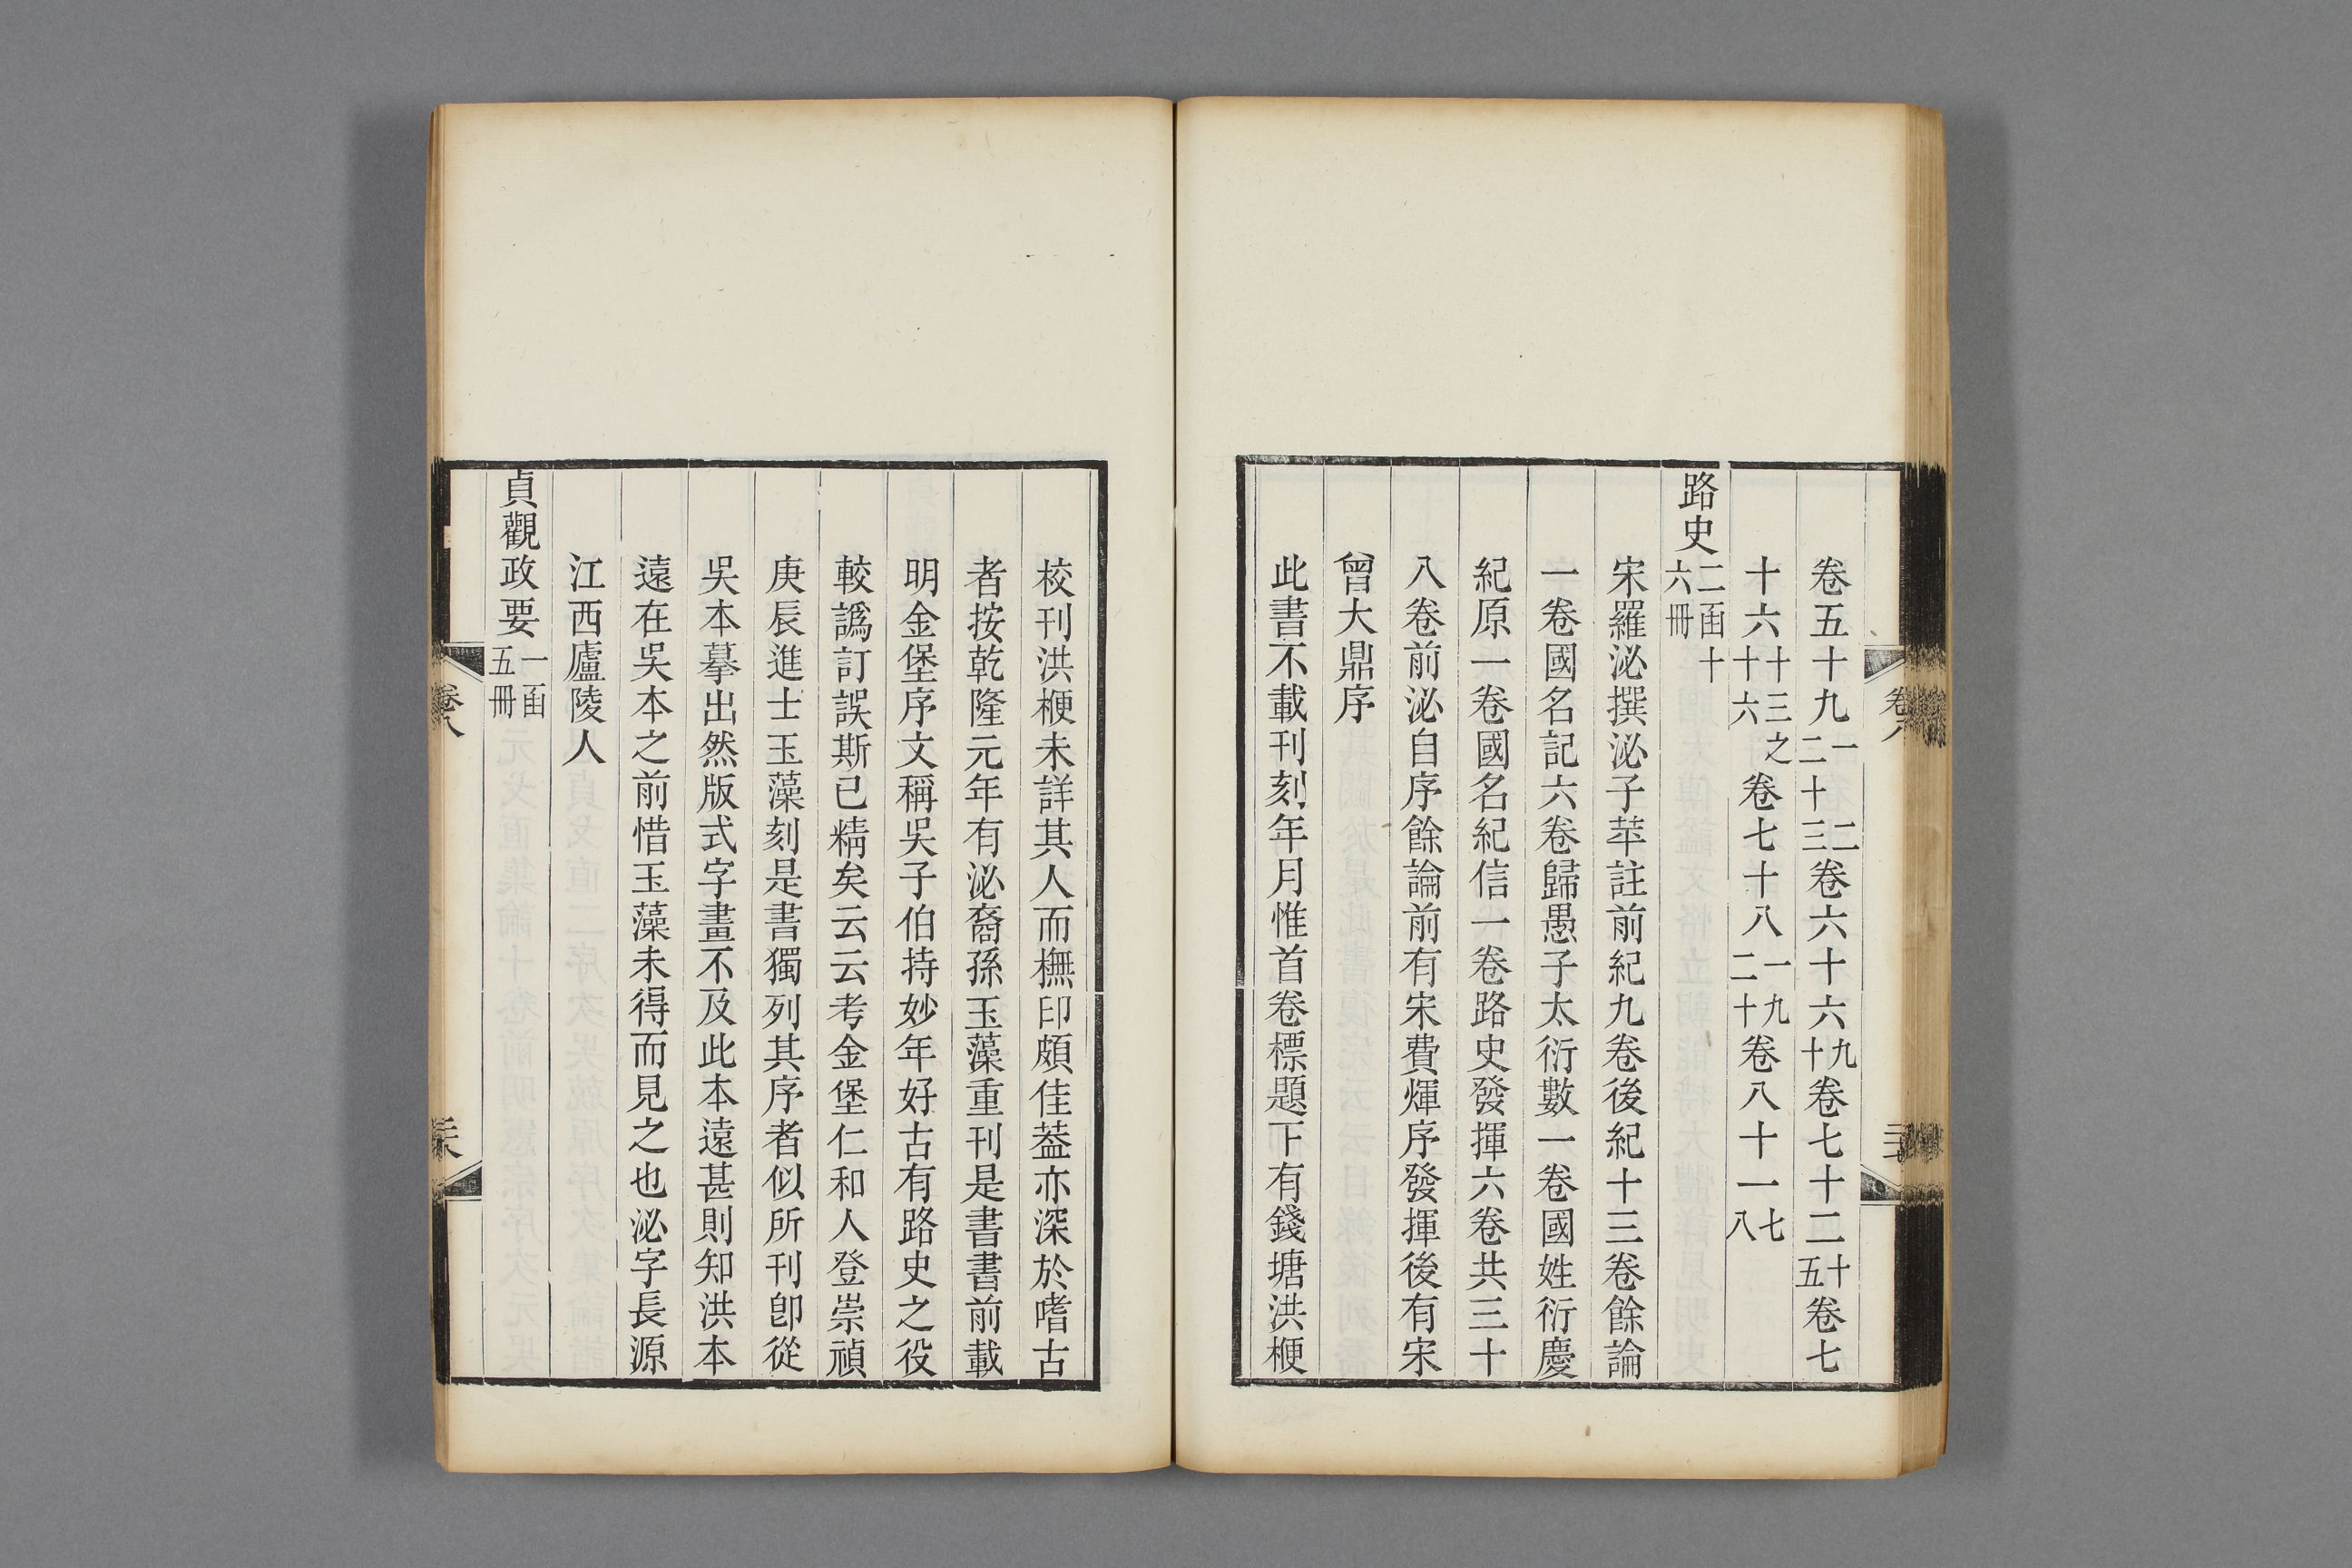 卷五十九一二十二三卷六十六九十卷七十二十五卷七
十六十三之十六卷七十八一九二十卷八十一七八
路史二函十六冊
宋羅泌撰泌子苹註前紀九卷後紀十三卷餘論
一卷國名記六卷歸愚子太衍數一卷國姓衍慶
紀原一卷國名紀信一卷路史發揮六卷共三十
八卷前泌自序餘論前有宋費煇序發揮後有宋
曾大鼎序
此書不載刊刻年月惟首卷標題下有錢塘洪楩
校刊洪楩未詳其人而橅印頗佳葢亦深於嗜古
者按乾隆元年有泌裔孫玉藻重刊是書書前載
明金堡序文稱吳子伯持妙年好古有路史之役
較譌訂誤斯已精矣云云考金堡仁和人登崇禎
庚辰進士玉藻刻是書獨列其序者似所刊卽從
吳本摹出然版式字畫不及此本遠甚則知洪本
遠在吳本之前惜玉藻未得而見之也泌字長源
江西廬陵人
貞觀政要一函五冊